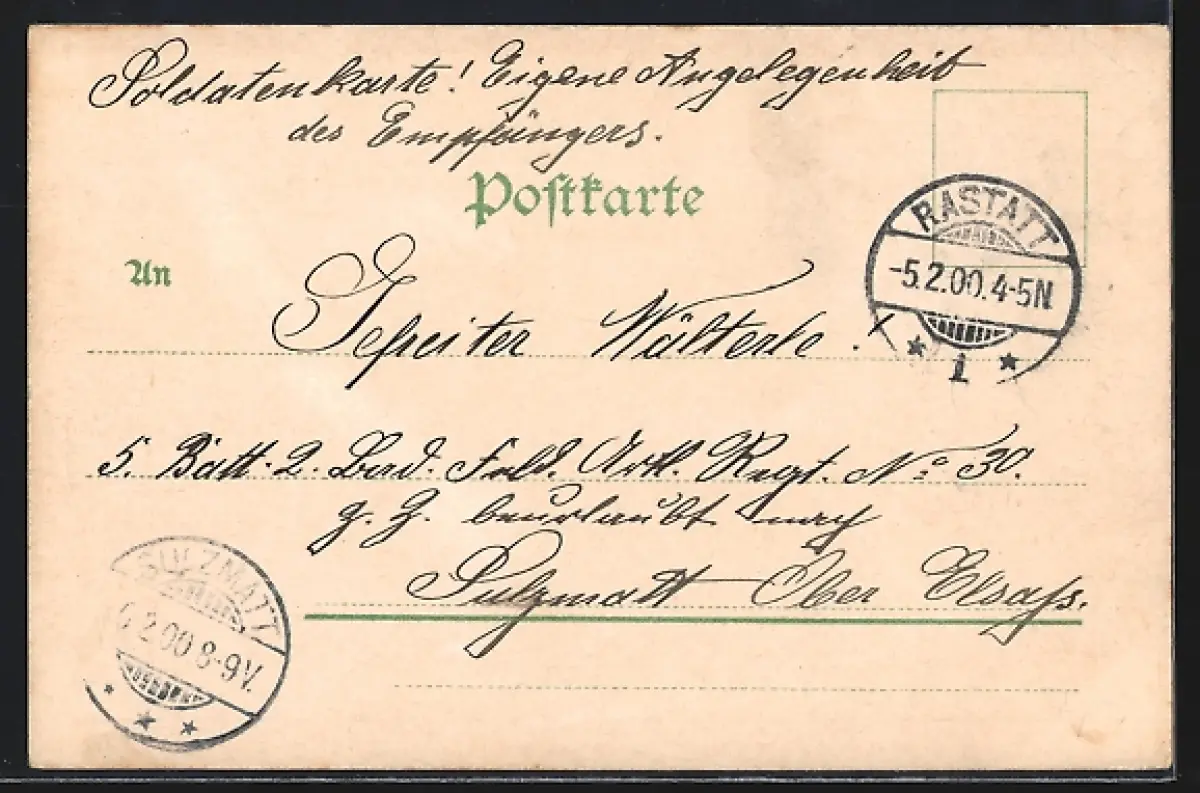 Soldatenkarte! Eigene Angelegenheit
des Empfängers.
Postkarte
RASTATT
-5.2.00.4-5N
* 1 *
An
Gefreiter Wälterle.
5. Batt. 2. Bad. Feld. Artl. Regt. No 30.
z. Z. beurlaubt nach
Sulzmatt Ober Elsass.
SULZMATT
2.00 8-9V.